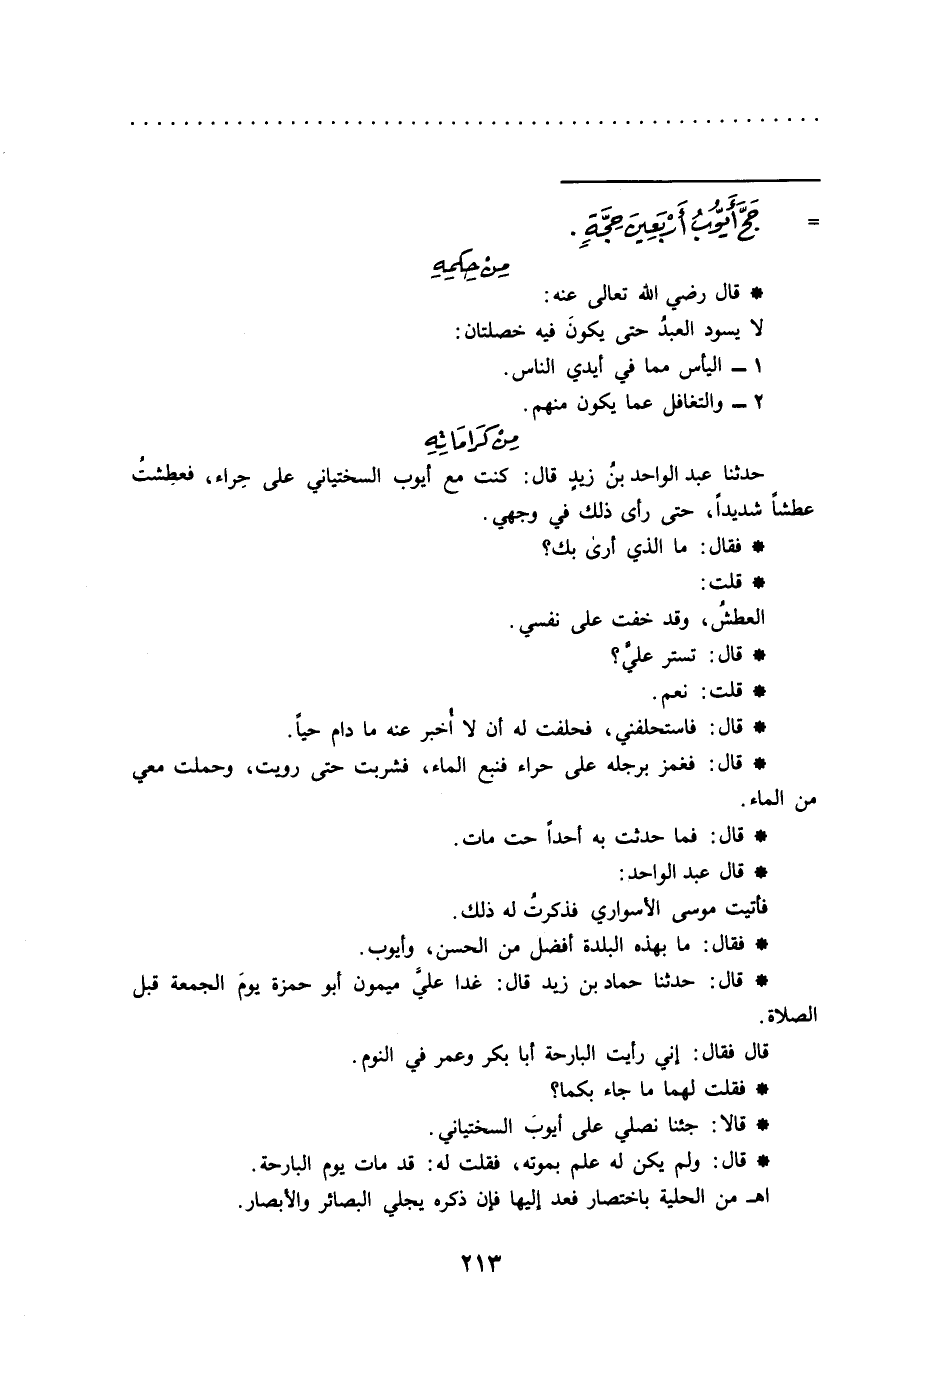 . . . . . . . . . . . . . . . . . . . . . . . . . . . . . . . . . . . . . . . . . . . . . . . . . . . .
= حَجَّ أَيُّوبُ أَرْبَعِينَ حِجَّةٍ .
مِنْ حِكَمِهِ
* قال رضي الله تعالى عنه:
لا يسود العبدُ حتى يكونَ فيه خصلتان:
١ ــ اليأس مما في أيدي الناس.
٢ ــ والتغافل عما يكون منهم.
مِنْ كَرَامَاتِهِ
حدثنا عبد الواحد بنُ زيدٍ قال: كنت مع أيوب السختياني على حِراء، فعطِشتُ
عطشاً شديداً، حتى رأى ذلك في وجهي.
* فقال: ما الذي أرىٰ بك؟
* قلت:
العطشُ، وقد خفت على نفسي.
* قال: تستر عليَّ؟
* قلت: نعم.
* قال: فاستحلفني، فحلفت له أن لا أُخبر عنه ما دام حياً.
* قال: فغمز برجله على حراء فنبع الماء، فشربت حتى رويت، وحملت معي
من الماء.
* قال: فما حدثت به أحداً حت مات.
* قال عبد الواحد:
فأتيت موسى الأسواري فذكرتُ له ذلك.
* فقال: ما بهذه البلدة أفضل من الحسن، وأيوب.
* قال: حدثنا حماد بن زيد قال: غدا عليَّ ميمون أبو حمزة يومَ الجمعة قبل
الصلاة.
قال فقال: إني رأيت البارحة أبا بكر وعمر في النوم.
* فقلت لهما ما جاء بكما؟
* قالا: جئنا نصلي على أيوبَ السختياني.
* قال: ولم يكن له علم بموته، فقلت له: قد مات يوم البارحة.
اهـ من الحلية باختصار فعد إليها فإن ذكره يجلي البصائر والأبصار.
٢١٣